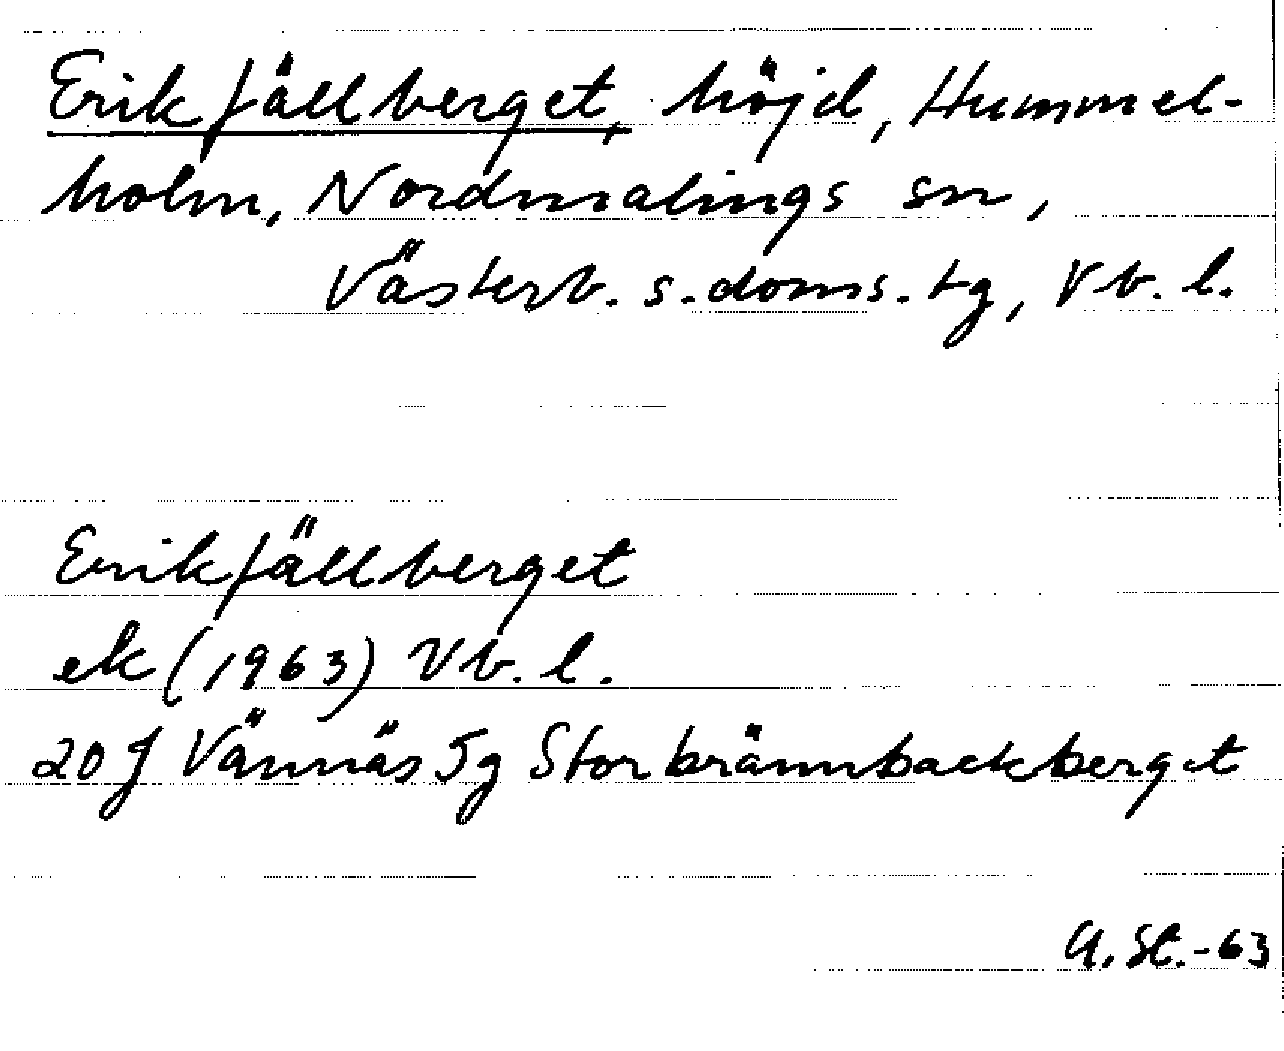 Erikfällberget, höjd, Hummel-
holm, Nordmalings sn,
Västerb. s. doms. tg, Vb. l.
Erikfällberget
ek (1963) Vb. l.
20 J Vännäs 5g Storbrännbackberget
A. St. -63